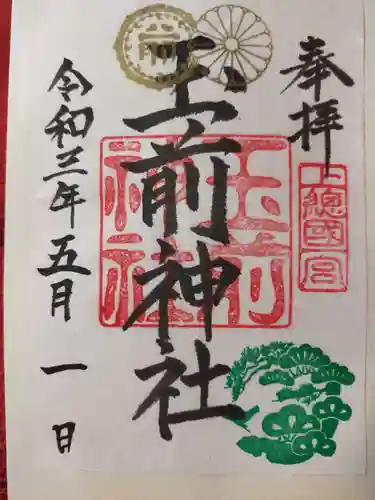 奉拝
上總國一宮
玉前神社
玉前神社
令和三年五月一日